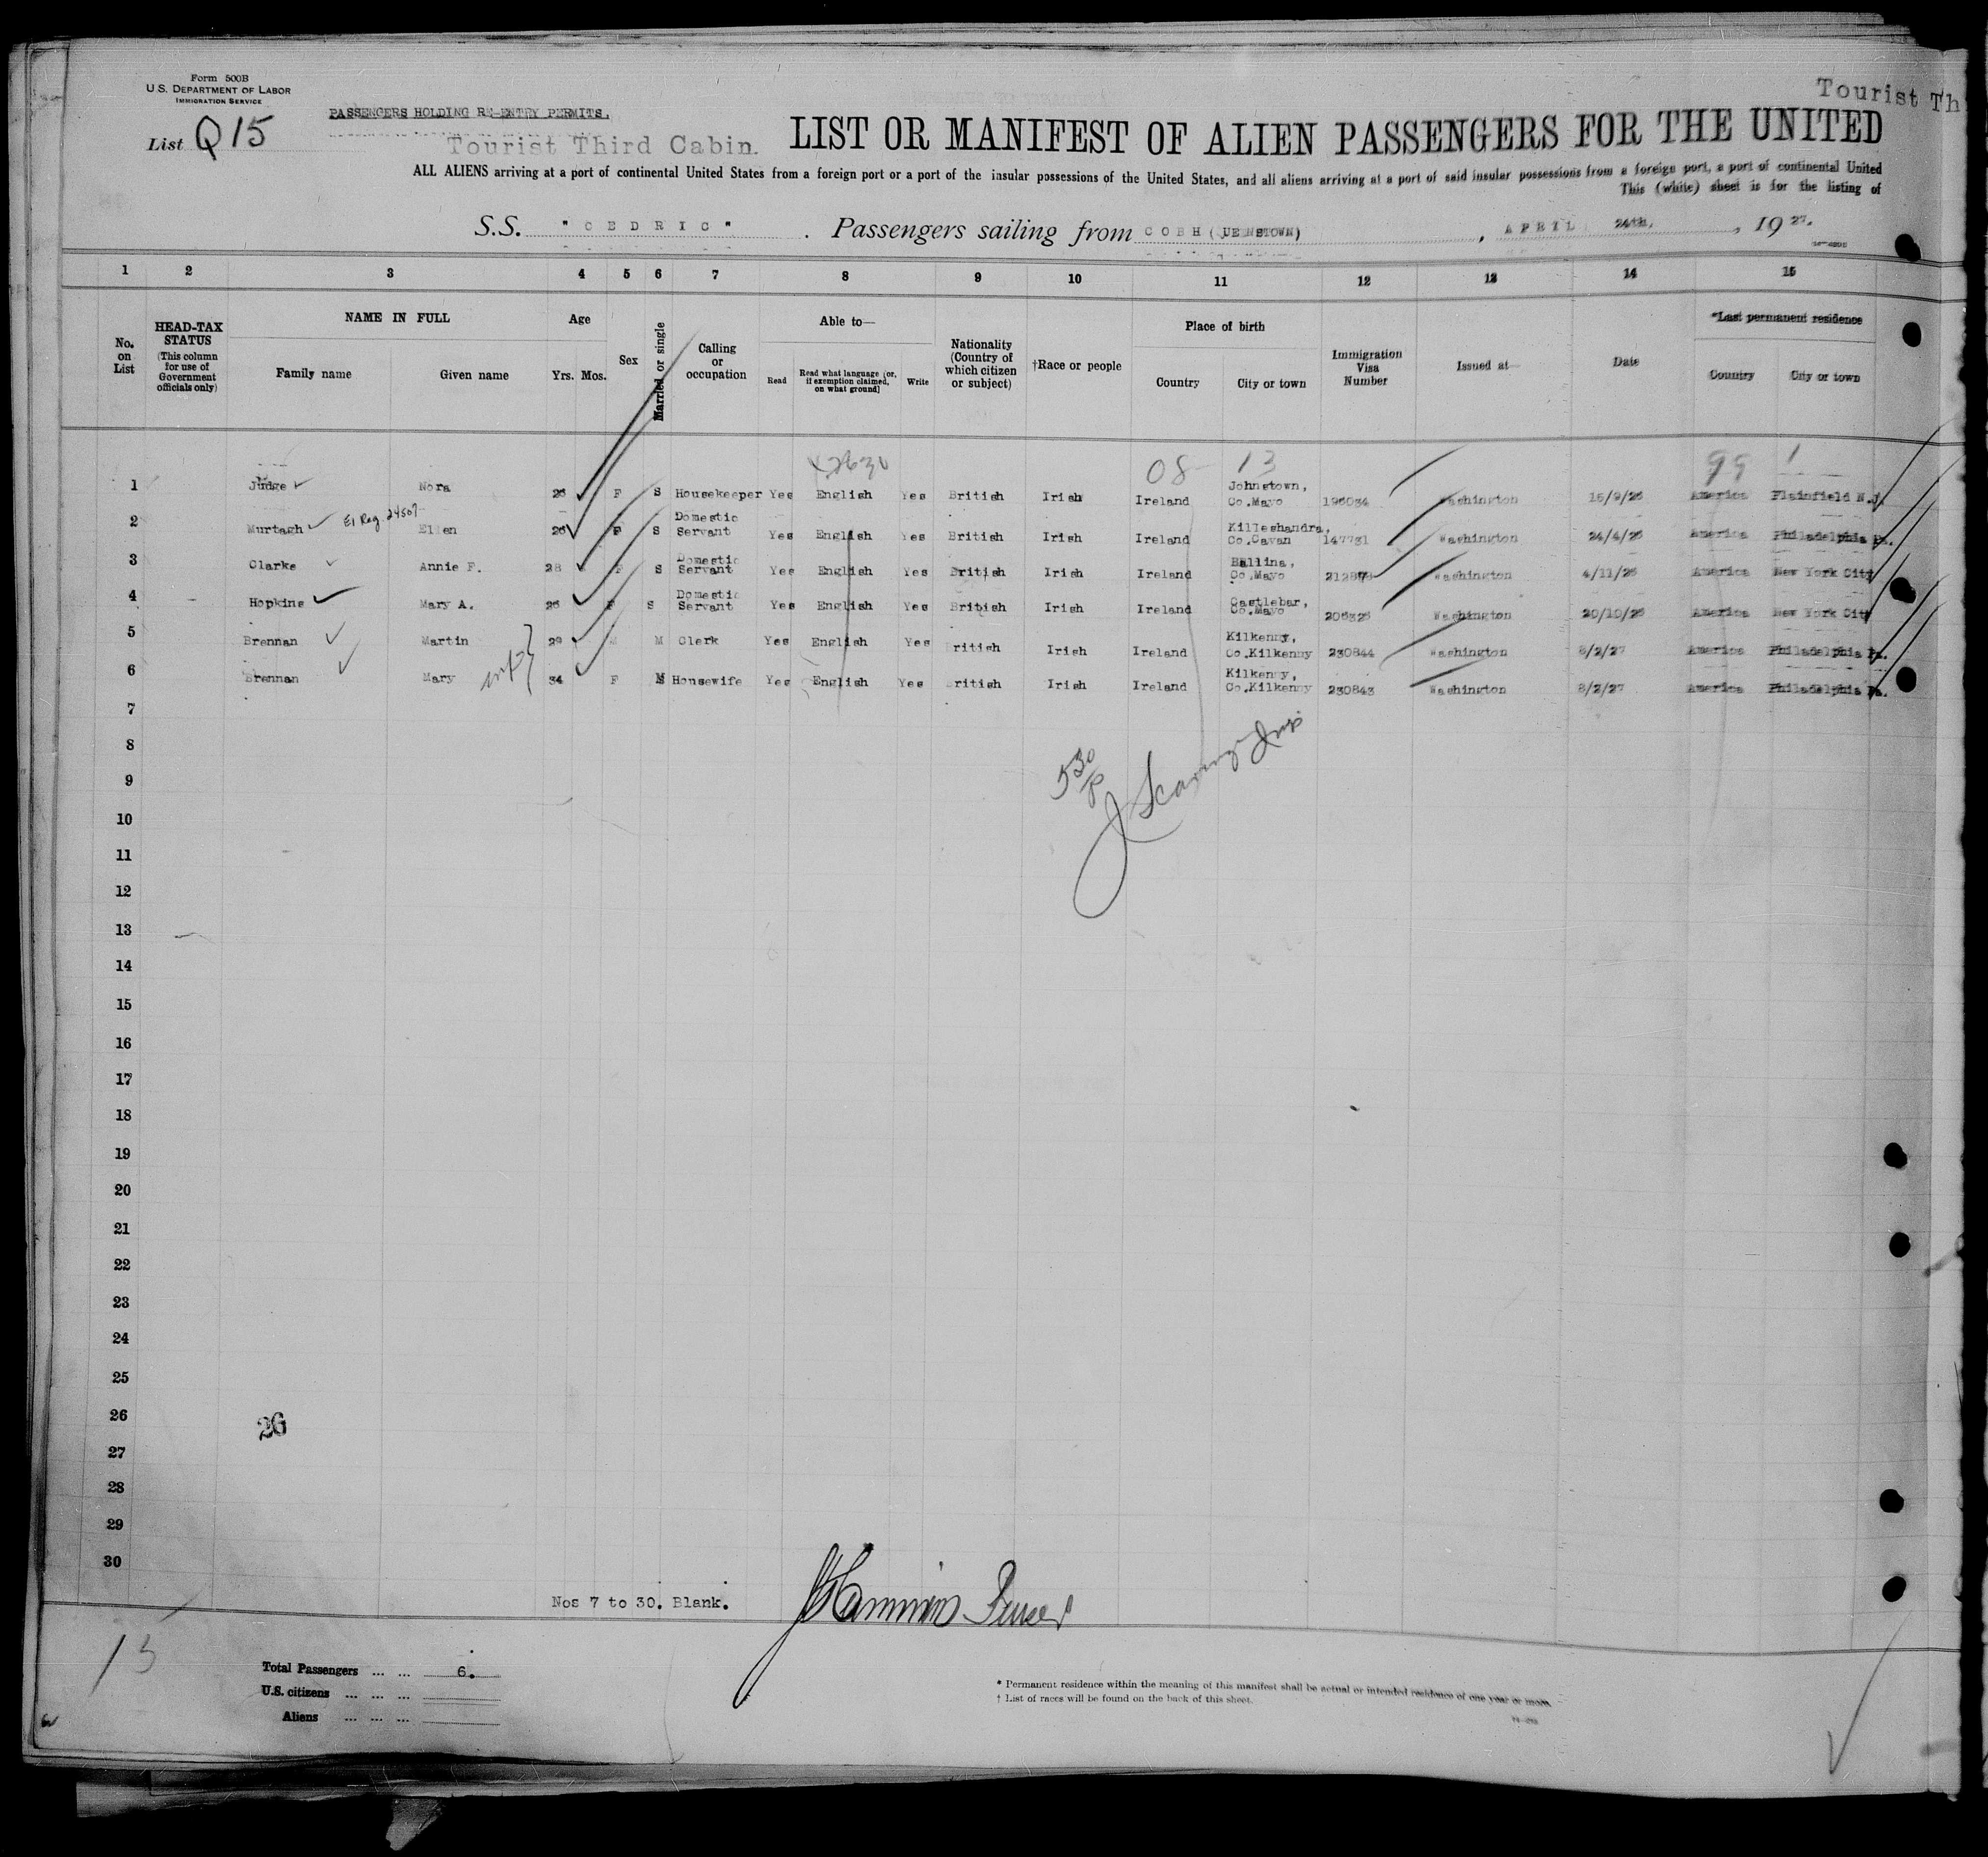 Form 500B
U.S. DEPARTMENT OF LABOR
IMMIGRATION SERVICE
List Q15
PASSENGERS HOLDING RE-ENTRY PERMITS.
Tourist Third Cabin.
Tourist Th
LIST OR MANIFEST OF ALIEN PASSENGERS FOR THE UNITED
ALL ALIENS arriving at a port of continental United States from a foreign port or a port of the insular possessions of the United States, and all aliens arriving at a port of said insular possessions from a foreign port, a port of continental United
This (white) sheet is for the listing of
S.S. " CEDRIC " . Passengers sailing from COBH ( UEENSTOWN) , APRIL 24th, , 19 27.
1 2 3 4 5 6 7 8 9 10 11 12 13 14 15
No. on List
HEAD-TAX STATUS (This column for use of Government officials only)
NAME IN FULL
Family name Given name
Age
Yrs. Mos.
Sex
Married or single
Calling or occupation
Able to—
Read
Read what language [or, if exemption claimed, on what ground]
Write
Nationality (Country of which citizen or subject)
†Race or people
Place of birth
Country City or town
Immigration Visa Number
Issued at—
Date
*Last permanent residence
Country City or town
08 13 99 1
1 Judge Nora 26 F S Housekeeper Yes English Yes British Irish Ireland Johnstown, Co.Mayo 196034 Washington 15/9/26 America Plainfield N.J.
2 Murtagh El Reg 24507 Ellen 26 F S Domestic Servant Yes English Yes British Irish Ireland Killeshandra, Co.Cavan 147731 Washington 24/4/26 America Philadelphia Pa.
3 Clarke Annie F. 28 F S Domestic Servant Yes English Yes British Irish Ireland Ballina, Co.Mayo 212879 Washington 4/11/26 America New York City
4 Hopkins Mary A. 26 F S Domestic Servant Yes English Yes British Irish Ireland Castlebar, Co.Mayo 206326 Washington 20/10/26 America New York City
5 Brennan Martin 29 M M Clerk Yes English Yes ritish Irish Ireland Kilkenny, Co.Kilkenny 230844 Washington 8/2/27 America Philadelphia Pa.
6 Brennan Mary 34 F M Housewife Yes English Yes ritish Irish Ireland Kilkenny, Co.Kilkenny 230843 Washington 8/2/27 America Philadelphia Pa.
7
8
9
10
11
12
13
14
15
16
17
18
19
20
21
22
23
24
25
26
26
27
28
29
30
Nos 7 to 30. Blank.
Purser
15
Total Passengers ... ... 6.
U.S. citizens ... ... ...
Aliens ... ... ...
* Permanent residence within the meaning of this manifest shall be actual or intended residence of one year or more.
† List of races will be found on the back of this sheet.